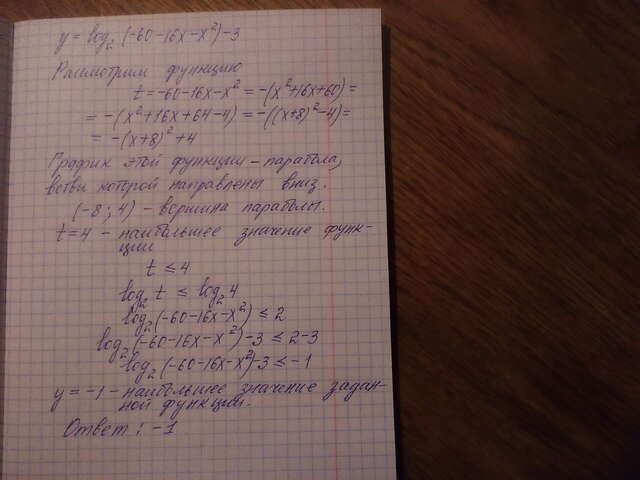 y = log₂ (-60-16x-x²)-3
Рассмотрим функцию
t = -60-16x-x² = -(x²+16x+60) =
= -(x²+16x+64-4) = -((x+8)²-4) =
= -(x+8)²+4
График этой функции - парабола,
ветви которой направлены вниз.
(-8; 4) - вершина параболы.
t=4 - наибольшее значение функ-
ции
t ≤ 4
log₂ t ≤ log₂ 4
log₂(-60-16x-x²) ≤ 2
log₂(-60-16x-x²)-3 ≤ 2-3
log₂(-60-16x-x²)-3 ≤ -1
y = -1 - наибольшее значение задан-
ной функции.
Ответ: -1